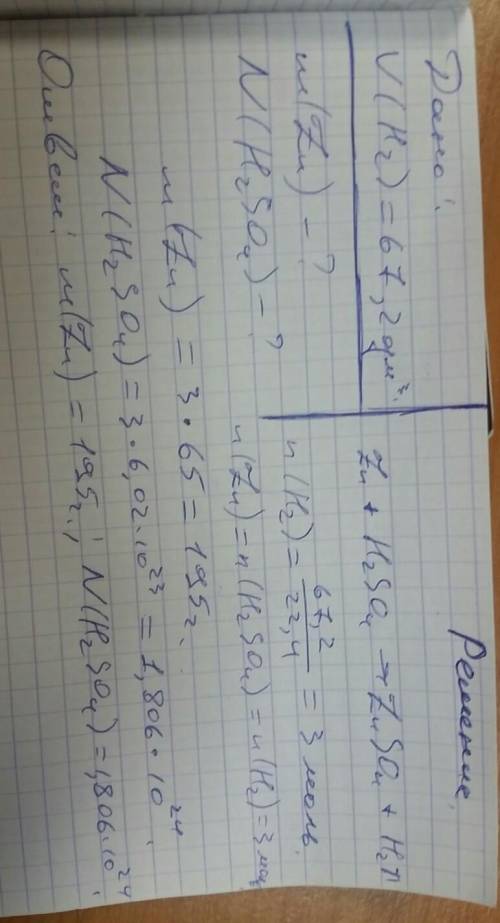 Дано:
V(H₂) = 67,2 дм³.
m(Zn) - ?
N(H₂SO₄) - ?
Решение.
Zn + H₂SO₄ → ZnSO₄ + H₂↑
n(H₂) = 67,2/22,4 = 3 моль.
n(Zn) = n(H₂SO₄) = n(H₂) = 3 моль
m(Zn) = 3 · 65 = 195 г.
N(H₂SO₄) = 3 · 6,02 · 10²³ = 1,806 · 10²⁴.
Ответ: m(Zn) = 195 г.; N(H₂SO₄) = 1,806 · 10²⁴.